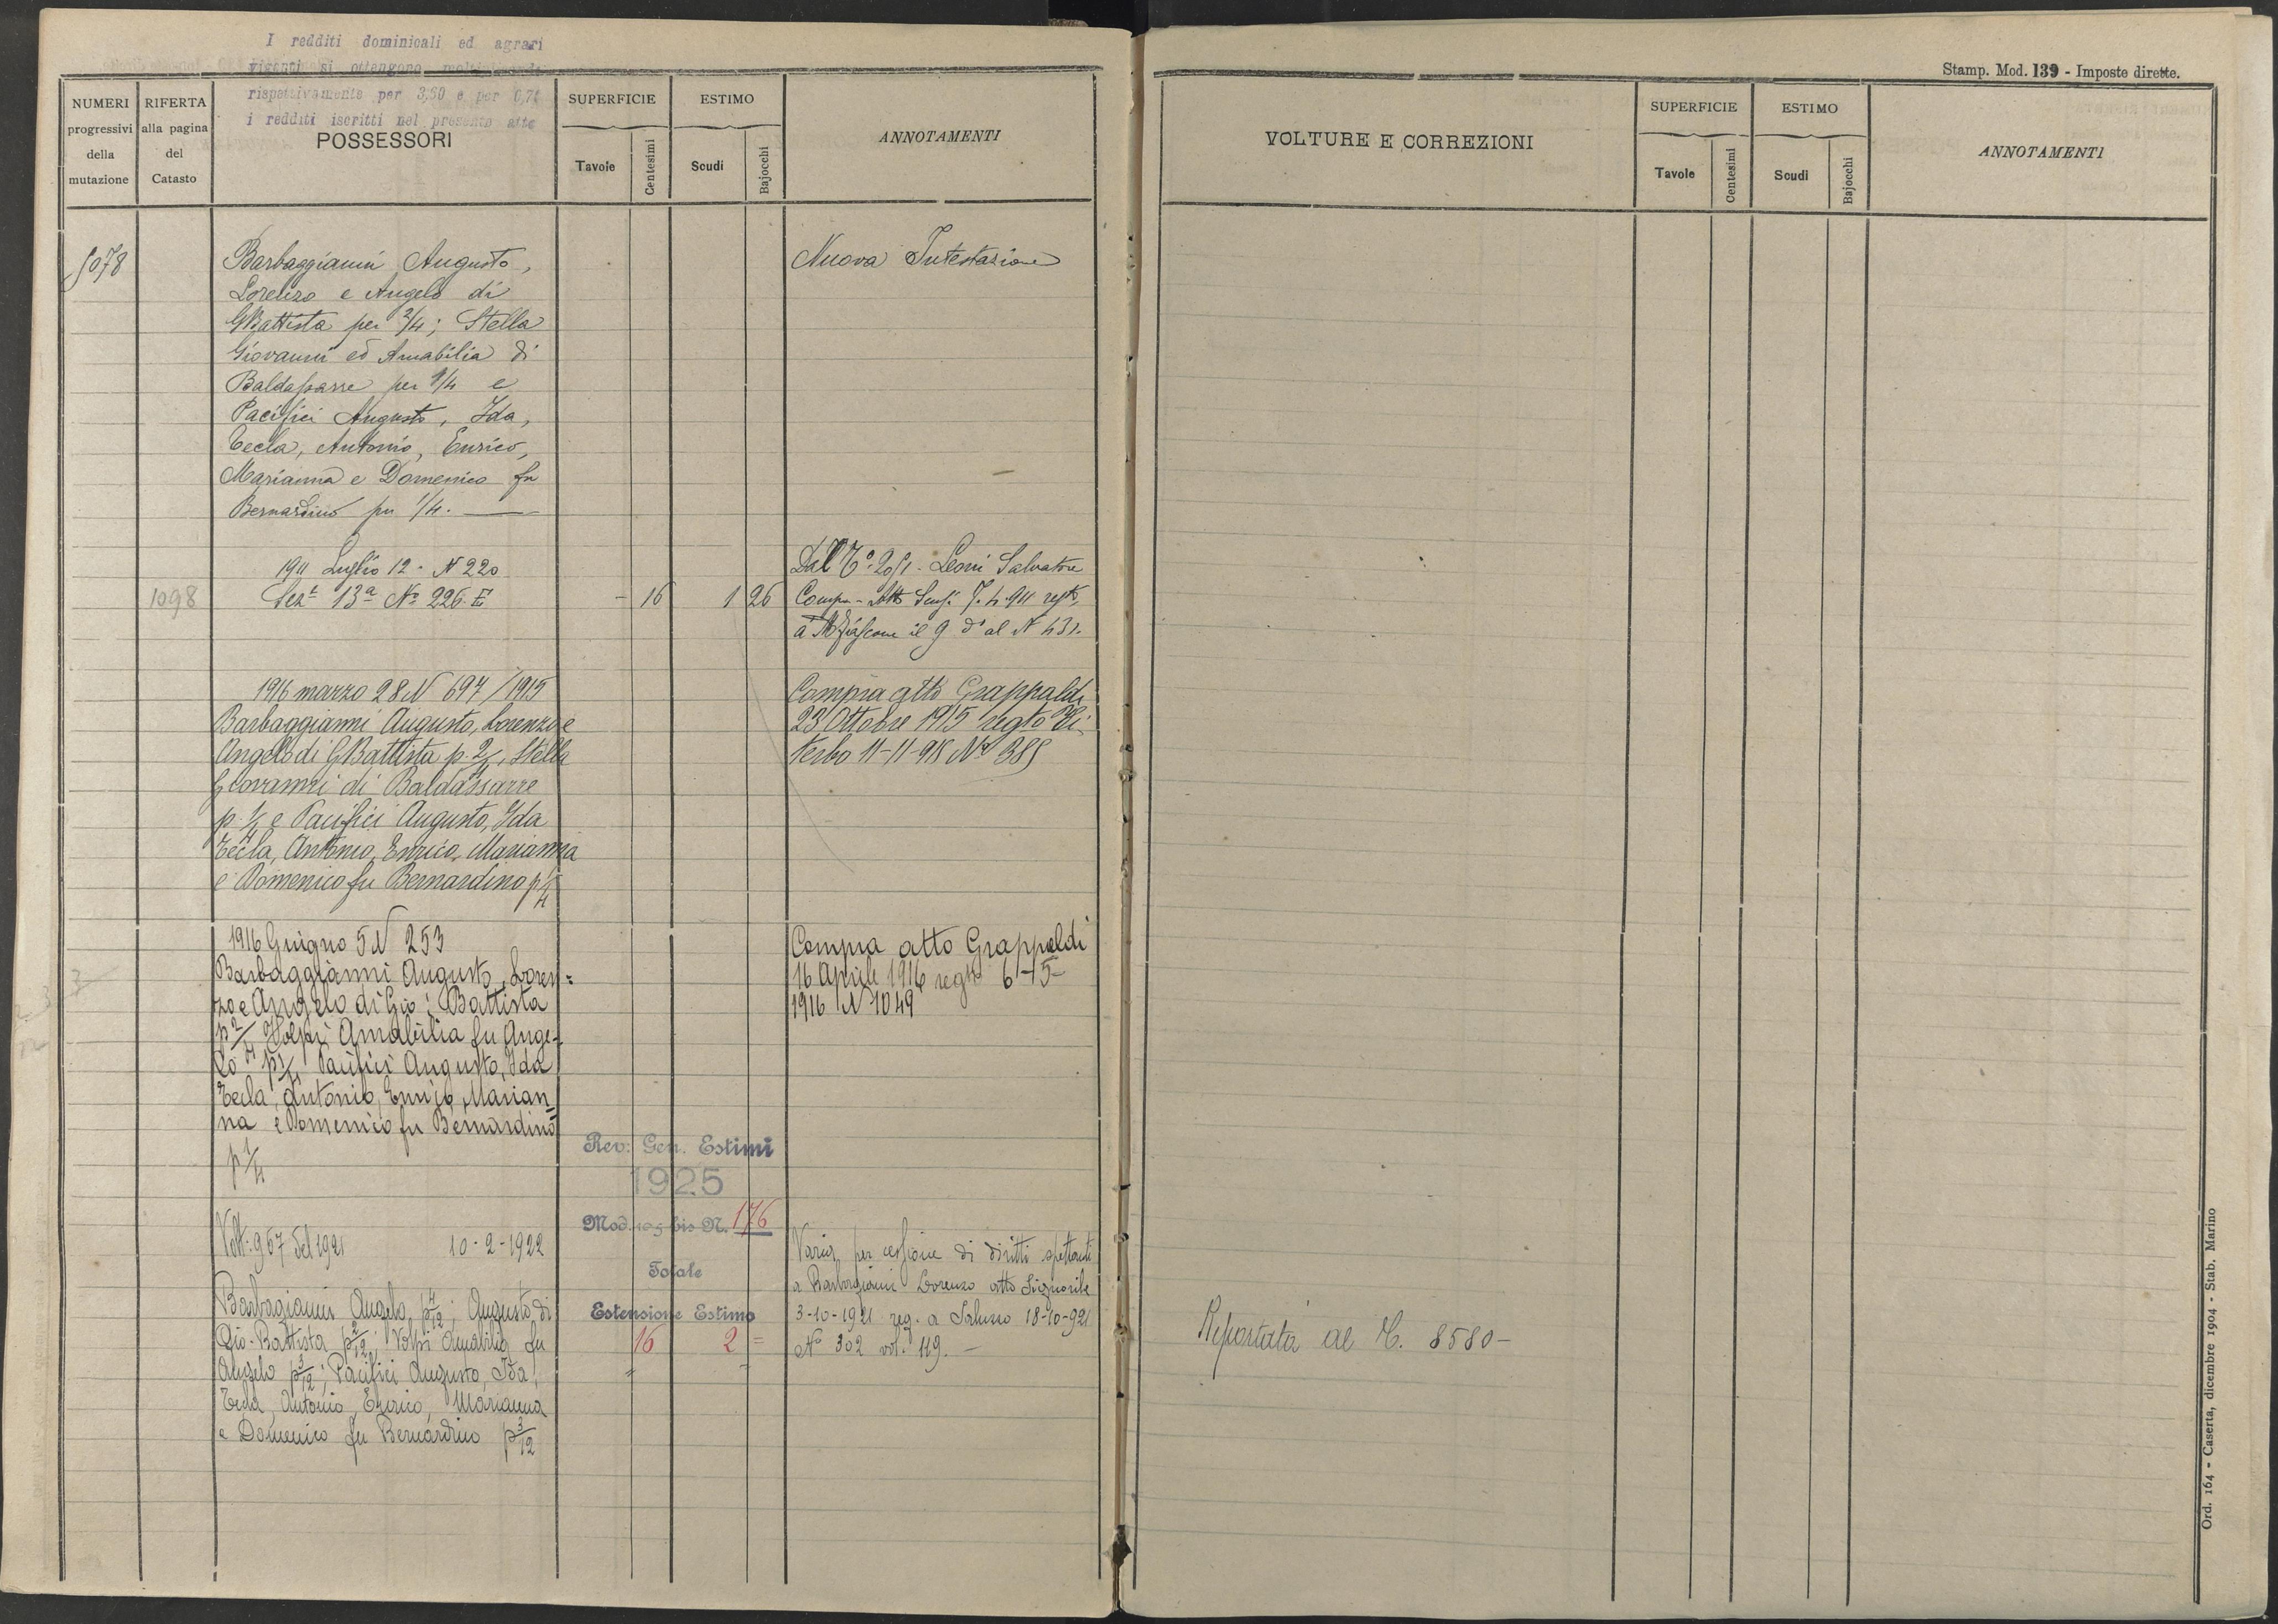 I redditi dominicali ed agrari
vigenti si ottengono moltiplicando
rispettivamente per 3,60 e per 0,70
i redditi iscritti nel presente atto
NUMERI
progressivi
della
mutazione
RIFERTA
alla pagina
del
Catasto
POSSESSORI
SUPERFICIE
Tavole
Centesimi
ESTIMO
Scudi
Bajocchi
ANNOTAMENTI
5078
Barbaggianni Augusto,
Lorenzo e Angelo di
GBattista per 2/4; Stella
Giovanni ed Amabilia di
Baldassarre per 1/4 e
Pacifici Augusto, Ida,
Tecla, Antonio, Enrico,
Marianna e Domenico fu
Bernardino per 1/4.
Nuova Intestazione
1911 Luglio 12 - N 220
1098
Sezе 13a No 226. E
- 16 1 26
Dal To. 2051 - Leoni Salvatore
Compra - Atto 7.4.911 regto
a Mfiascone il 9 do al N 431.
1916 marzo 28 N 697/1915
Barbaggianni Augusto, Lorenzo e
Angelo di GBattista p. 2/4, Stella
Giovanni di Baldassarre
p. 1/4 e Pacifici Augusto, Ida
Tecla, Antonio, Enrico, Marianna
e Domenico fu Bernardino p 1/4
Compra atto Grappaldi
23 Ottobre 1915 regto Vi
terbo 11-11-915 No 385
1916 Giugno 5 N 253
Barbaggianni Augusto, Loren=
zo e Angelo di Gio: Battista
p 2/4 Volpi Amabilia fu Ange-
lo p 1/4 Pacifici Augusto, Ida
Tecla, Antonio, Enrico, Marian
na e Domenico fu Bernardino
p 1/4
Compra atto Grappaldi
16 Aprile 1916 regto 6-5-
1916 N 1049
Rev: Gen. Estimi
1925
Mod. 109 bis N. 176
Totale
Estensione Estimo
16 2 =
Volt: 967 del 1921 10-2-1922
Barbagianni Angelo p 4/12; Augusto di
Gio-Battista p 2/12; Volpi Amabilia fu
Angelo p 3/12; Pacifici Augusto, Ida,
Tecla, Antonio, Enrico, Marianna
e Domenico fu Bernardino p 3/12
Variaz per cessione di diritti spettanti
a Barbagianni Lorenzo atto Signorile
3-10-1921 reg. a Saluzzo 18-10-921
No 302 vol. 119. -
Stamp. Mod. 139 - Imposte dirette.
VOLTURE E CORREZIONI
SUPERFICIE
Tavole
Centesimi
ESTIMO
Scudi
Bajocchi
ANNOTAMENTI
Reportata al C. 8580-
Ord. 164 - Caserta, dicembre 1904 - Stab. Marino